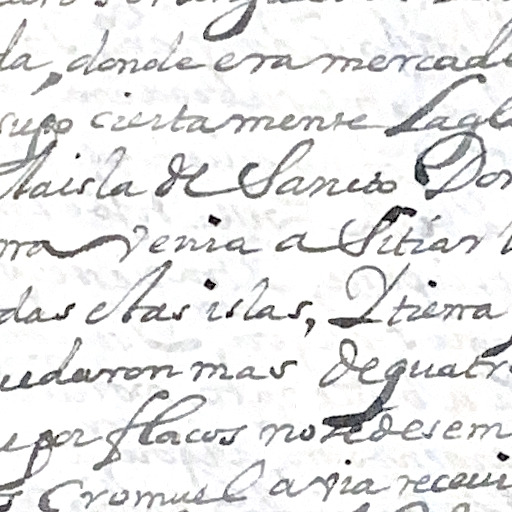 da, donde era mercade
supo ciertamente La gla
la isla de Sancto Dom
venia a Sitiar l
das estas islas, Y tierra
uedaron mas de quatr
por flacos no se desem
Cromuel avia receui